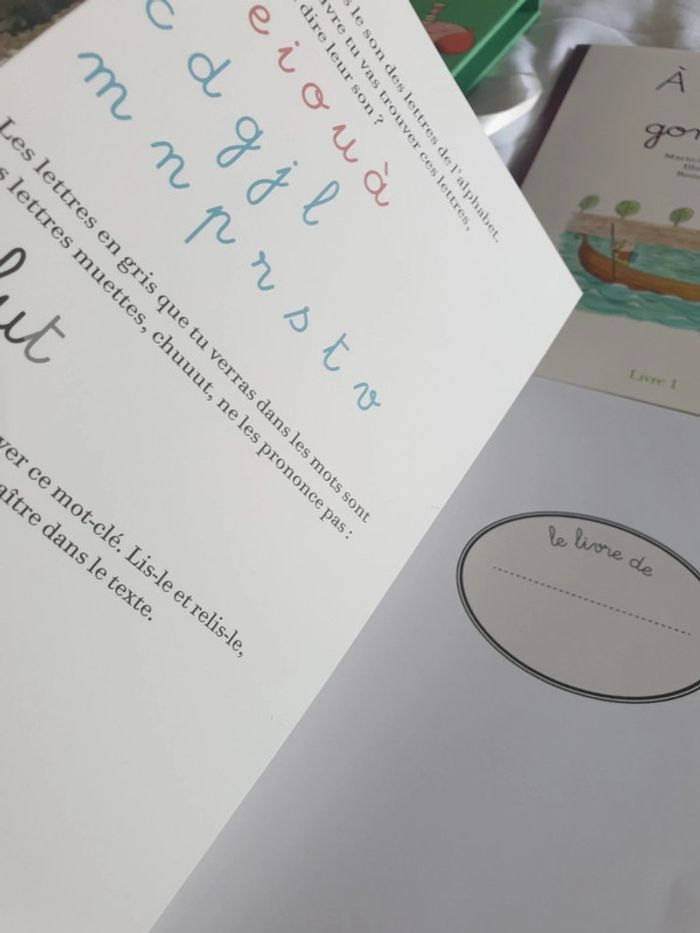 le son des lettres de l'alphabet.
tu vas trouver ces lettres,
dire leur son ?
e i o u à
c d g j l
m n p r s t v
Les lettres en gris que tu verras dans les mots sont
lettres muettes, chuuut, ne les prononce pas :
ce mot-clé. Lis-le et relis-le,
dans le texte.
À
Livre 1
le livre de